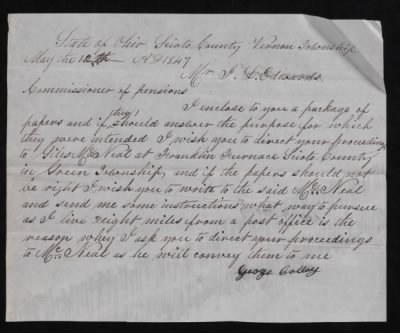 State of Ohio Scioto County Vernon Township
May the 12th AD 1847
Mr J. L. Edwards
Commissioner of pensions
I enclose to you a package of
papers and if they should answer the purpose for which
they were intended I wish you to direct your proceedings
to Giles McNeal at Franklin Furnace Scioto County
in Green Township, and if the papers should not
be right I wish you to write to the said McNeal
and send me some instructions what way to pursue
as I live eight miles from a post office is the
reason whey I ask you to direct your proceedings
to McNeal as he will convey them to me
George